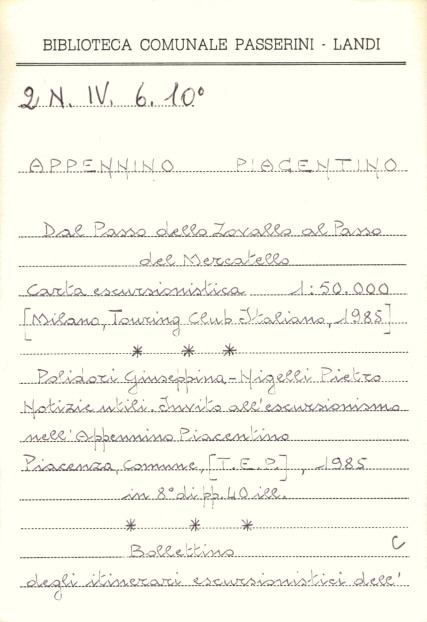 BIBLIOTECA COMUNALE PASSERINI - LANDI
2 N. IV. 6. 10°
APPENNINO PIACENTINO
Dal Passo dello Zovallo al Passo
del Mercatello
Carta escursionistica 1:50.000
[Milano, Touring Club Italiano, 1985]
* * *
Polidori Giuseppina - Nigelli Pietro
Notizie utili. Invito all'escursionismo
nell'Appennino Piacentino
Piacenza, Comune, [T.E.P.], 1985
in 8° di pp. 40 ill.
* * *
Bollettino C
degli itinerari escursionistici dell'